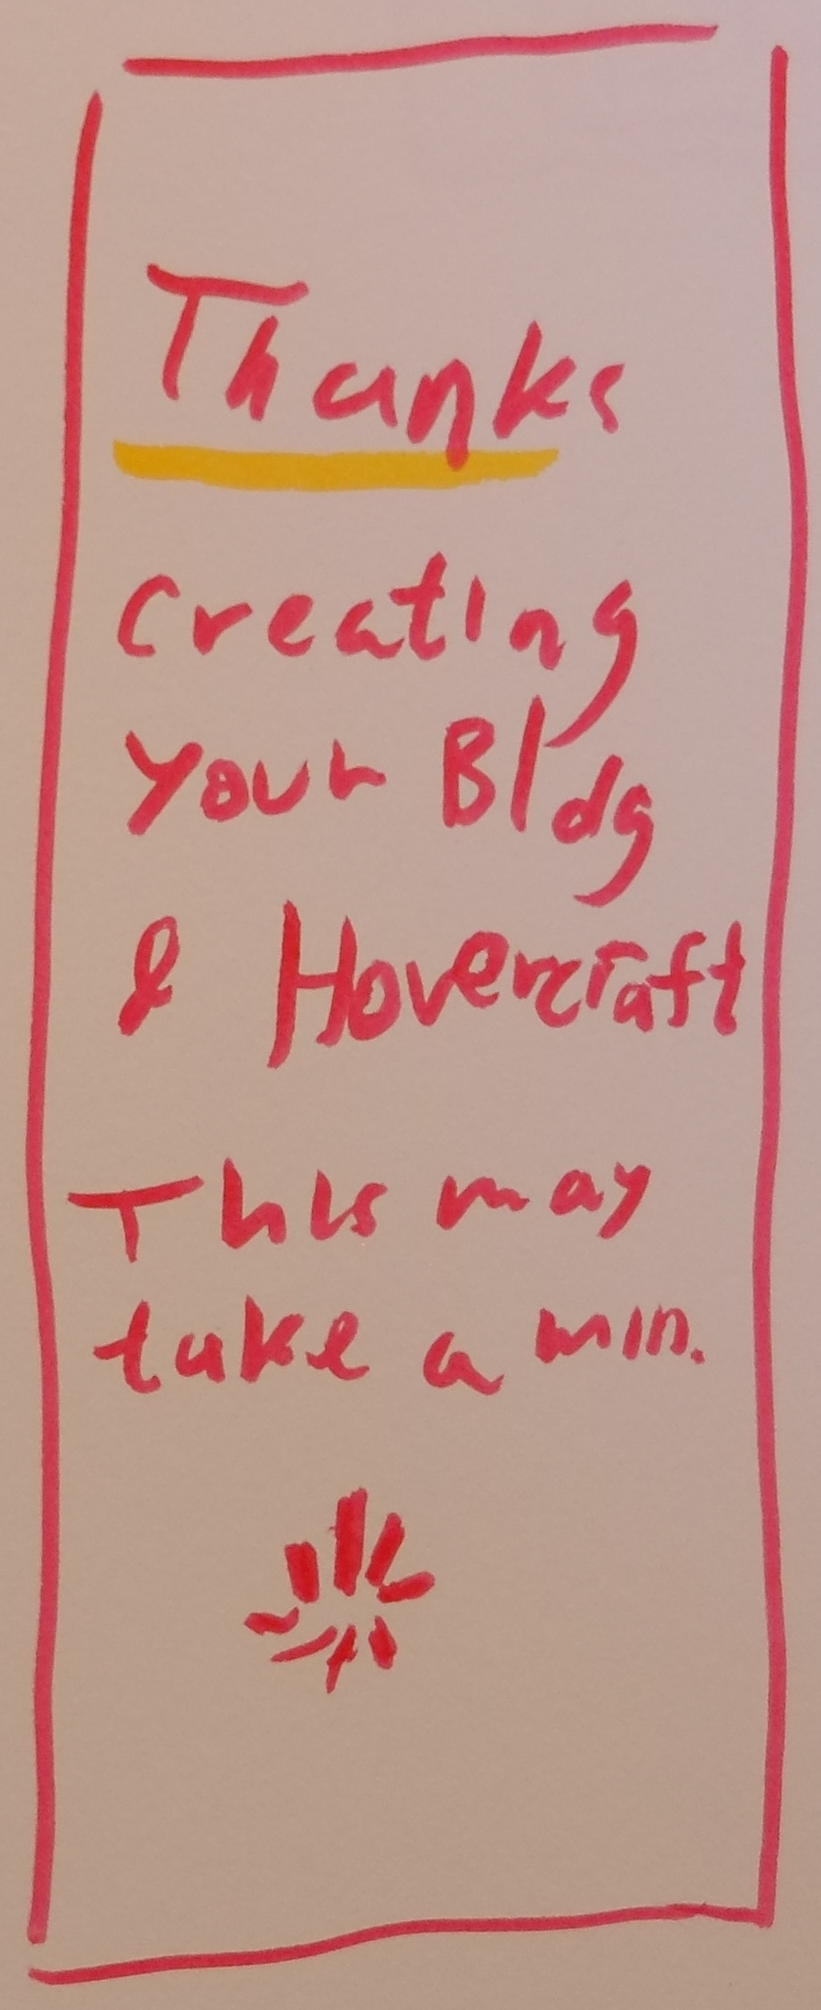 Thanks
Creating
Your Bldg
& Hovercraft
This may
take a min.